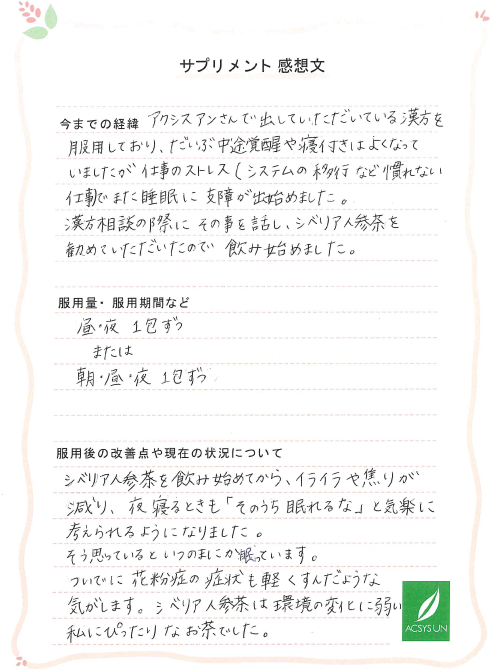 サプリメント 感想文
今までの経緯 アクシスアンさんで出していただいている漢方を
服用しており、だいぶ中途覚醒や寝付きはよくなって
いましたが仕事のストレス(システムの移行など慣れない
仕事でまた睡眠に支障が出始めました。
漢方相談の際にその事を話し、シベリア人参茶を
勧めていただいたので 飲み始めました。
服用量・服用期間など
昼・夜 1包ずつ
または
朝・昼・夜 1包ずつ
服用後の改善点や現在の状況について
シベリア人参茶を飲み始めてから、イライラや焦りが
減り、夜寝るときも「そのうち眠れるな」と気楽に
考えられるようになりました。
そう思っているといつのまにか眠っています。
ついでに花粉症の症状も軽くすんだような
気がします。シベリア人参茶は環境の変化に弱い
私にぴったりなお茶でした。
ACSYSUN